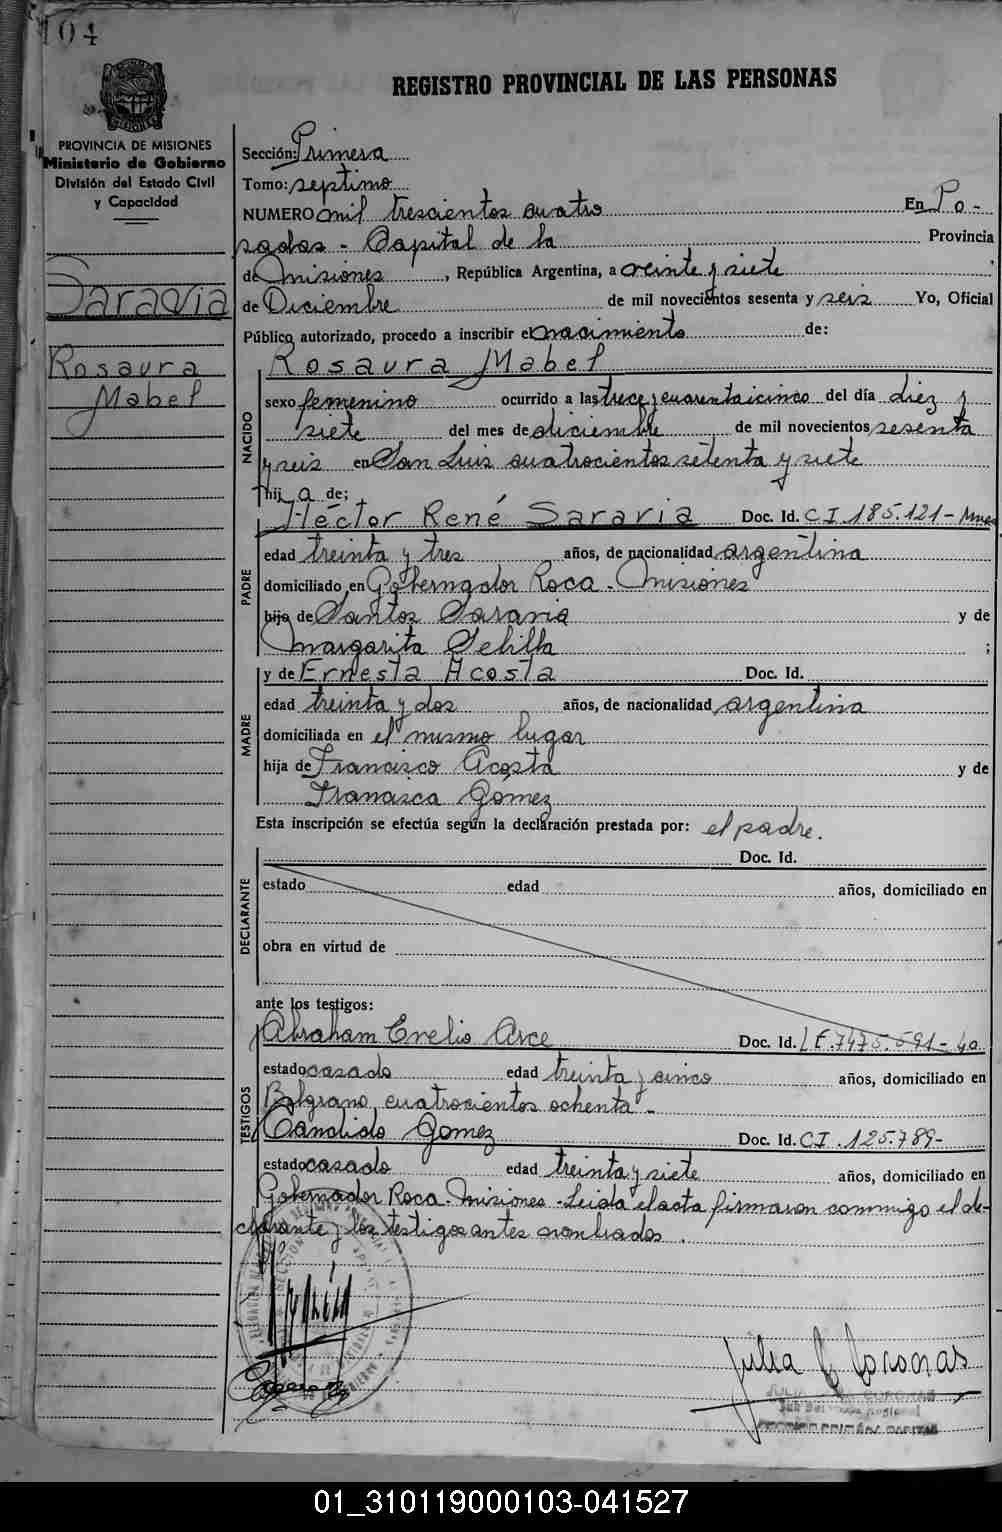 104
REGISTRO PROVINCIAL DE LAS PERSONAS
PROVINCIA DE MISIONES
Ministerio de Gobierno
División del Estado Civil
y Capacidad
Saravia
Rosaura
Mabel
Sección: Primera
Tomo: septimo
NUMERO mil trescientos cuatro En Po-
sadas - Capital de la Provincia
de Misiones, República Argentina, a veinte y siete
de Diciembre de mil novecientos sesenta y seis Yo, Oficial
Público autorizado, procedo a inscribir el nacimiento de:
NACIDO
Rosaura Mabel
sexo femenino ocurrido a las trece y cuarentaicinco del día diez y
siete del mes de diciembre de mil novecientos sesenta
y seis en San Luis cuatrocientos setenta y siete
hij a de;
PADRE
Héctor René Saravia Doc. Id. C I 185.121- Mnes
edad treinta y tres años, de nacionalidad argentina
domiciliado en Gobernador Roca - Misiones
hijo de Santos Saravia y de
Margarita ;
MADRE
y de Ernesta Acosta Doc. Id.
edad treinta y dos años, de nacionalidad argentina
domiciliada en el mismo lugar
hija de Francisco Acosta y de
Francisca Gómez
Esta inscripción se efectúa según la declaración prestada por: el padre.
DECLARANTE
Doc. Id.
estado edad años, domiciliado en
obra en virtud de
ante los testigos:
TESTIGOS
Abraham Evelio Arce Doc. Id. L E. 7475.591-
estado casado edad treinta y cinco años, domiciliado en
Belgrano cuatrocientos ochenta -
Candido Gomez Doc. Id. C I . 125.789-
estado casado edad treinta y siete años, domiciliado en
Gobernador Roca - Misiones - Leida el acta firmaron conmigo el de-
clarante y los testigos antes nombrados.
Julia E Coronas
JULIA CORONAS
01_310119000103-041527